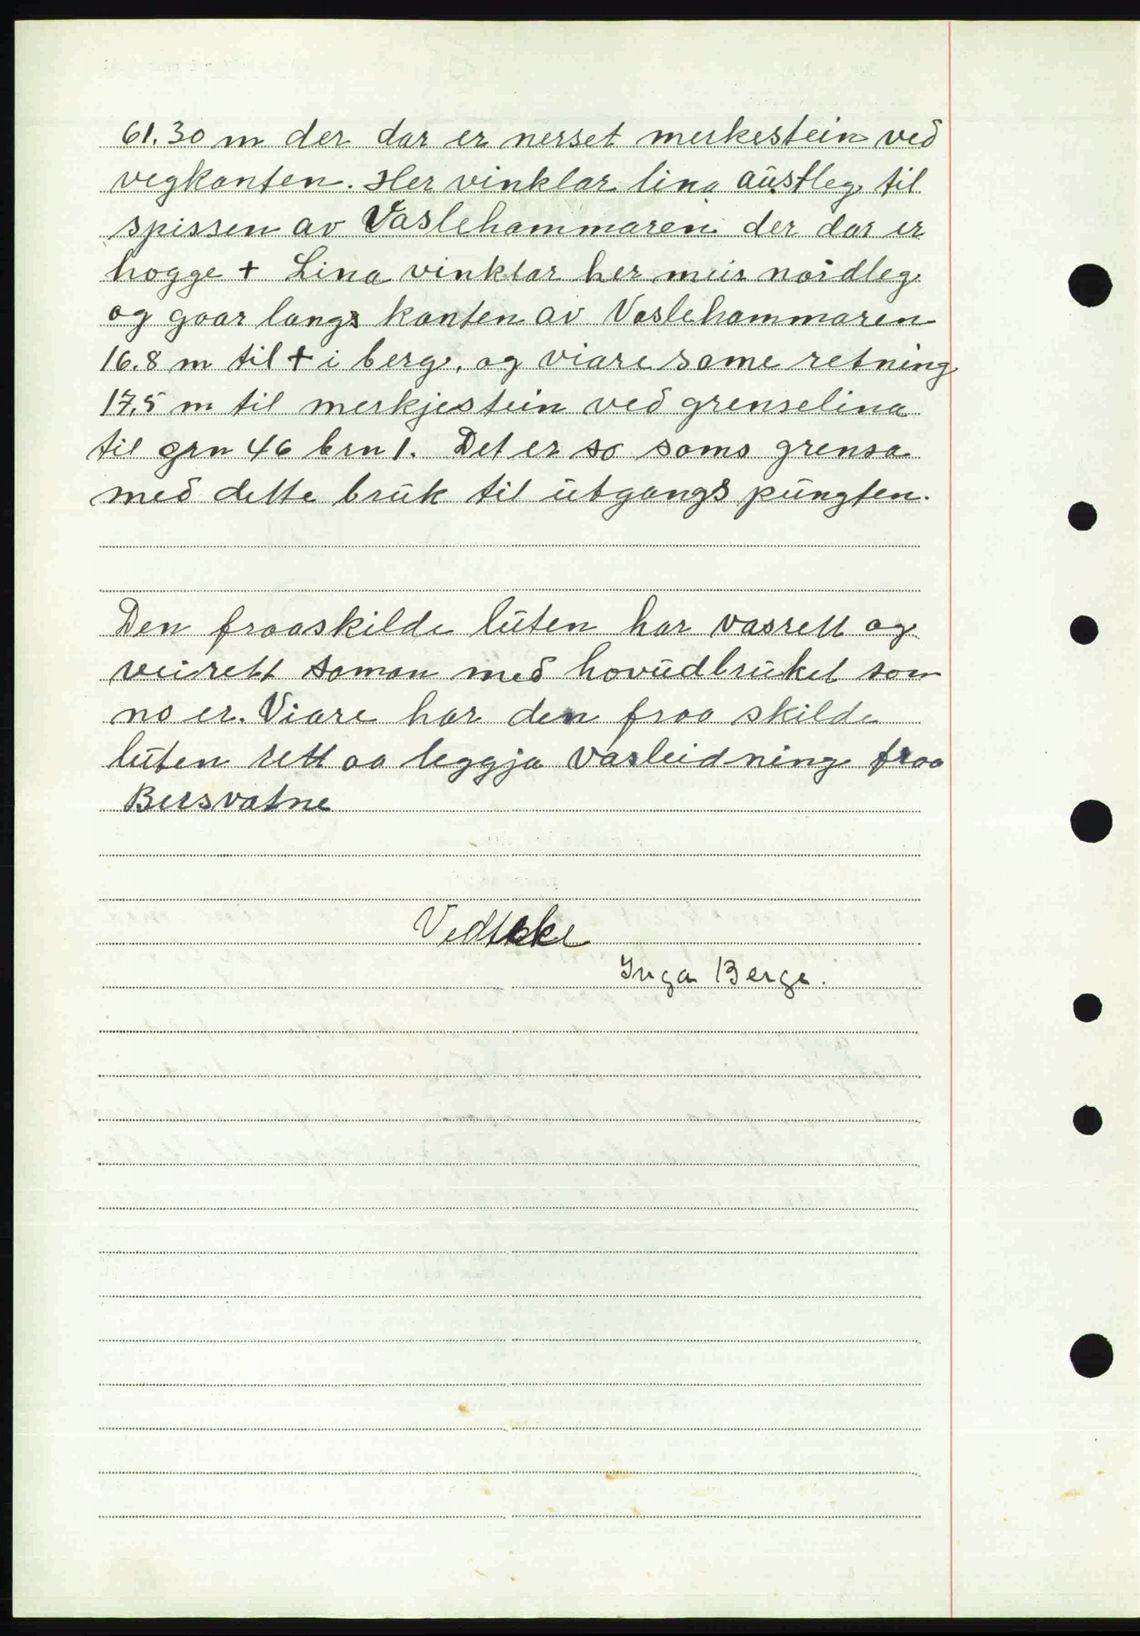 61.30 m der dar er nerset merkestein ved
vegkanten. Her vinklar lina austleg til
spissen av Vaslehammaren der dar er
hogge + Lina vinklar her meir nordleg
og gaar langs kanten av Vaslehammaren
16.8 m til + i berg, og viare same retning
17,5 m til merkjestein ved grenselina
til grn 46 brn 1. Det er so sams grensa
med dette bruk til utgangs pungten.
Den fraaskilde luten har vasrett og
veirett saman med hovudbruket som
no er. Viare har den fraa skilde
luten rett aa leggja vasleidning fraa
Bersvatne
Vedteke
Inga Berge.